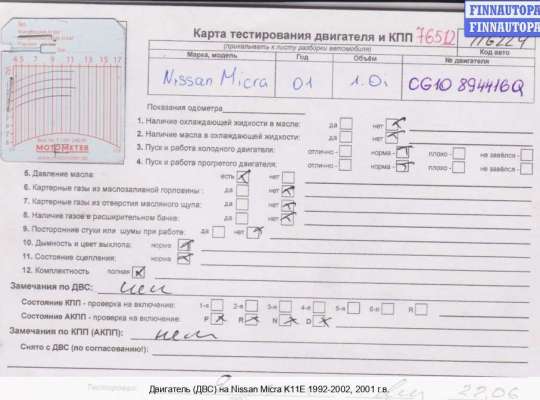 FINNAUTOPA
FINNAUTOPA
Карта тестирования двигателя и КПП 76512
(прикалывать к листу разборки автомобиля)
Код авто
Марка, модель Год Объём № двигателя
Nissan Micra 01 1.0i CG10 894416Q
4 5 7 9 11 13 15 17
MOTOMETER
Показания одометра
1. Наличие охлаждающей жидкости в масле: да нет
2. Наличие масла в охлаждающей жидкости: да нет
3. Пуск и работа холодного двигателя: отлично - норма - плохо - не завёлся -
4. Пуск и работа прогретого двигателя: отлично - норма - плохо - не завёлся -
5. Давление масла: есть нет
6. Картерные газы из маслозаливной горловины: да нет
7. Картерные газы из отверстия масляного щупа: да нет
8. Наличие газов в расширительном бачке: да нет
9. Посторонние стуки или шумы при работе: да нет
10. Дымность и цвет выхлопа: норма
11. Состояние сцепления: норма
12. Комплектность полная
Замечания по ДВС: нет
Состояние КПП - проверка на включение: 1-я 2-я 3-я 4-я 5-я 6-я R
Состояние АКПП - проверка на включение: P R N D
Замечания по КПП (АКПП): нет
Снято с ДВС (по согласованию!):
Тестировал: 22.06
Двигатель (ДВС) на Nissan Micra K11E 1992-2002, 2001 г.в.